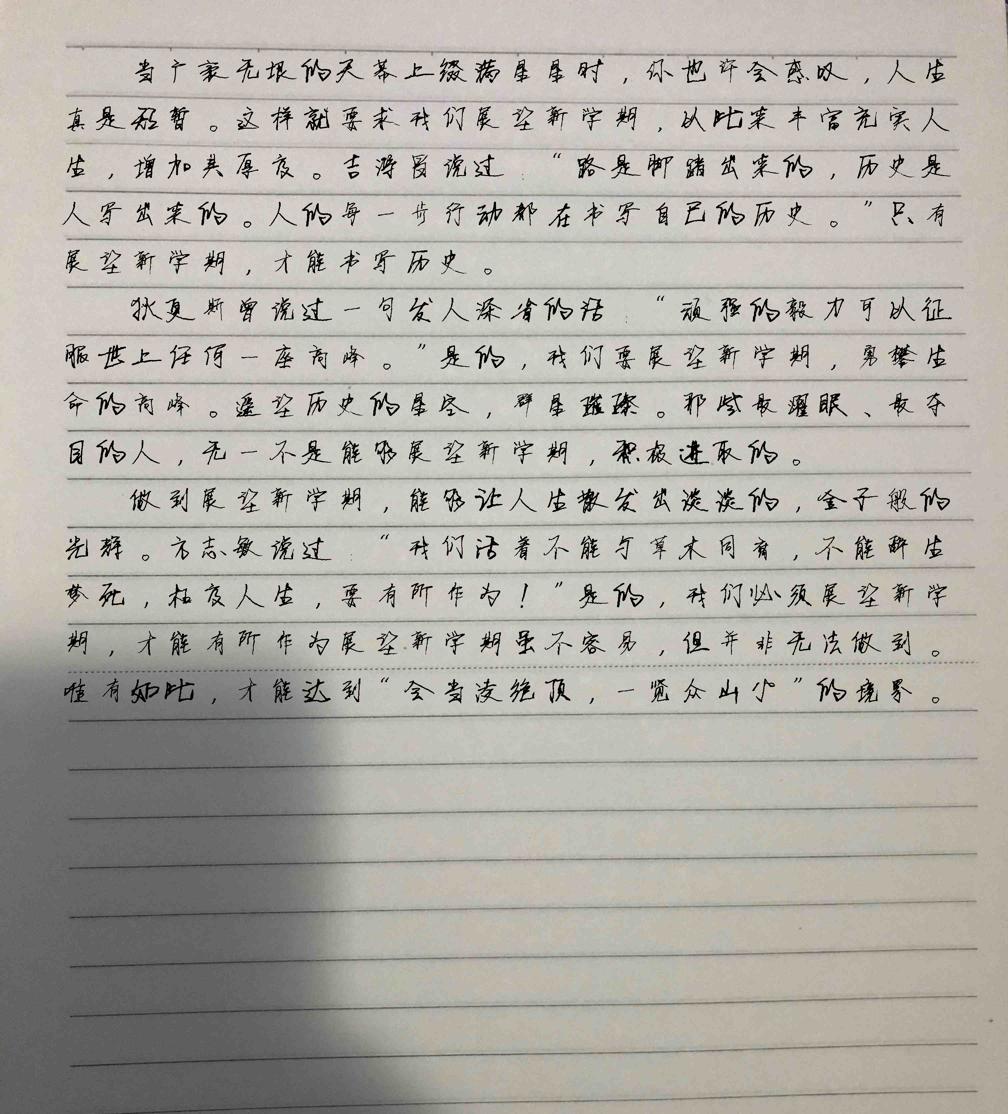 当广袤无垠的天幕上缀满星星时，你也许会感叹，人生
真是短暂。这样就要求我们展望新学期，以此来丰富充实人
生，增加其厚度。吉鸿昌说过：“路是脚踏出来的，历史是
人写出来的。人的每一步行动都在书写自己的历史。”只有
展望新学期，才能书写历史。
狄更斯曾说过一句发人深省的话：“顽强的毅力可以征
服世上任何一座高峰。”是的，我们要展望新学期，勇攀生
命的高峰。遥望历史的星空，群星璀璨。那些最耀眼、最夺
目的人，无一不是能够展望新学期，积极进取的。
做到展望新学期，能够让人生散发出淡淡的，金子般的
光辉。方志敏说过：“我们活着不能与草木同腐，不能醉生
梦死，枉度人生，要有所作为！”是的，我们必须展望新学
期，才能有所作为展望新学期虽不容易，但并非无法做到。
唯有如此，才能达到“会当凌绝顶，一览众山小”的境界。